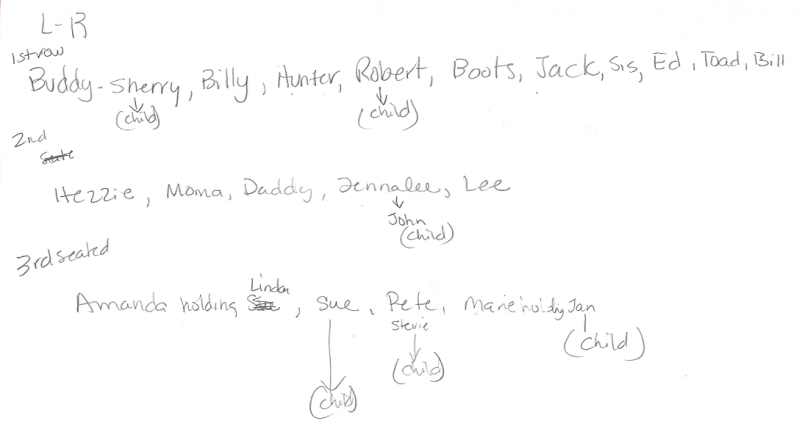 L-R
1st row
Buddy - Sherry, Billy, Hunter, Robert, Boots, Jack, Sis, Ed, Toad, Bill
(child) (child)
2nd
Hezzie, Moma, Daddy, Jennalee, Lee
John
(child)
3rd seated
Linda
Amanda holding, Sue, Pete, Marie holding Jan
Stevie
(child)
(child)
(child)